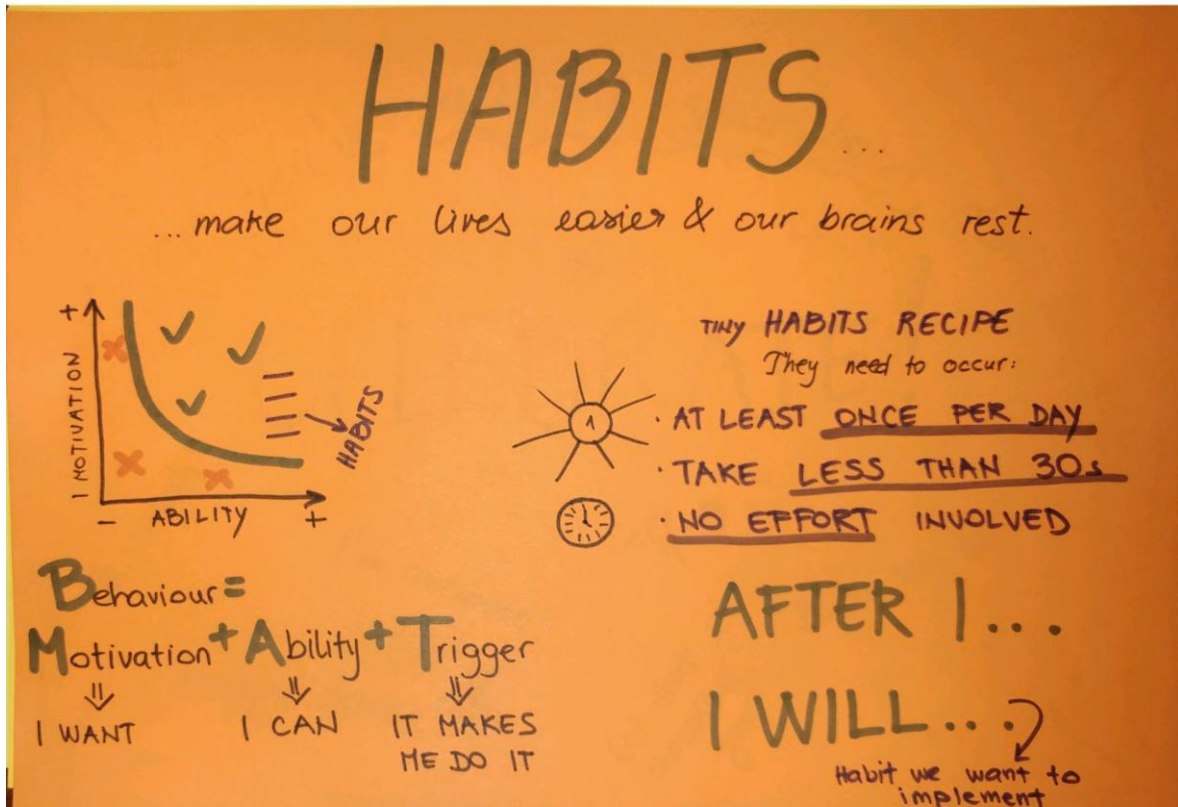 HABITS...
...make our lives easier & our brains rest.
+
I MOTIVATION
- ABILITY +
HABITS
TINY HABITS RECIPE
They need to occur:
1
· AT LEAST ONCE PER DAY
· TAKE LESS THAN 30s
· NO EFFORT INVOLVED
Behaviour=
Motivation + Ability + Trigger
I WANT
I CAN
IT MAKES
ME DO IT
AFTER I...
I WILL...
Habit we want to
implement